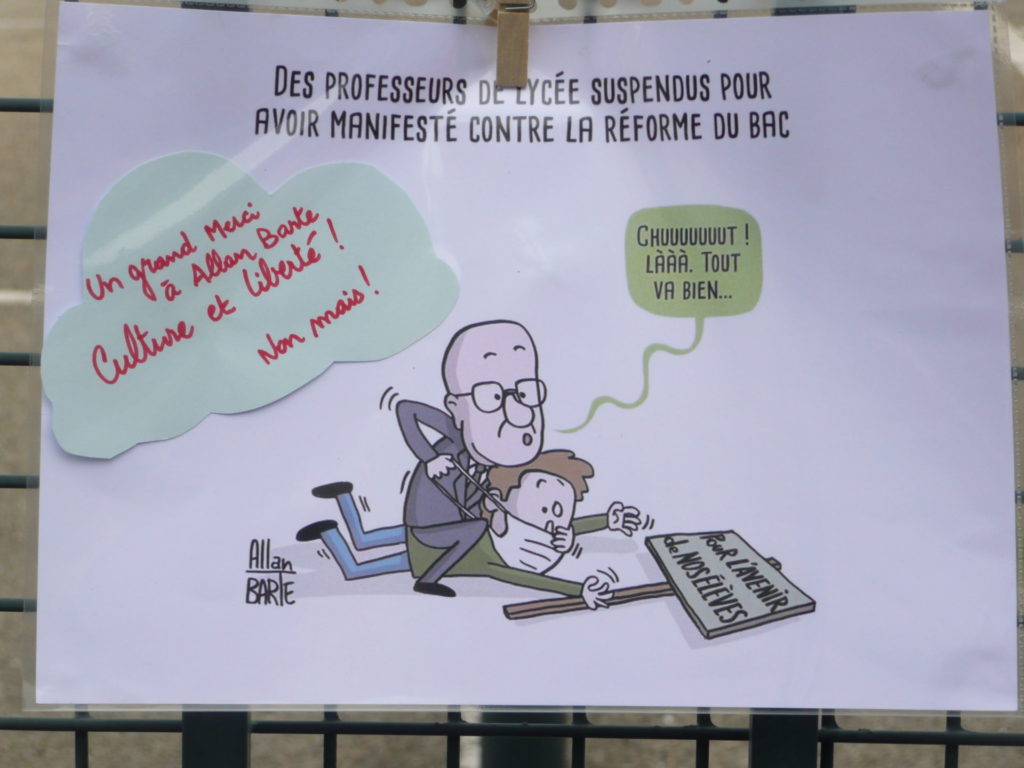 DES PROFESSEURS DE LYCÉE SUSPENDUS POUR
AVOIR MANIFESTÉ CONTRE LA RÉFORME DU BAC
Un grand Merci
à Allan Barte
Culture et liberté !
Non mais !
CHUUUUUUUT !
LÀÀÀ. TOUT
VA BIEN...
POUR L'AVENIR
de NOS ÉLÈVES
Allan
BARTE